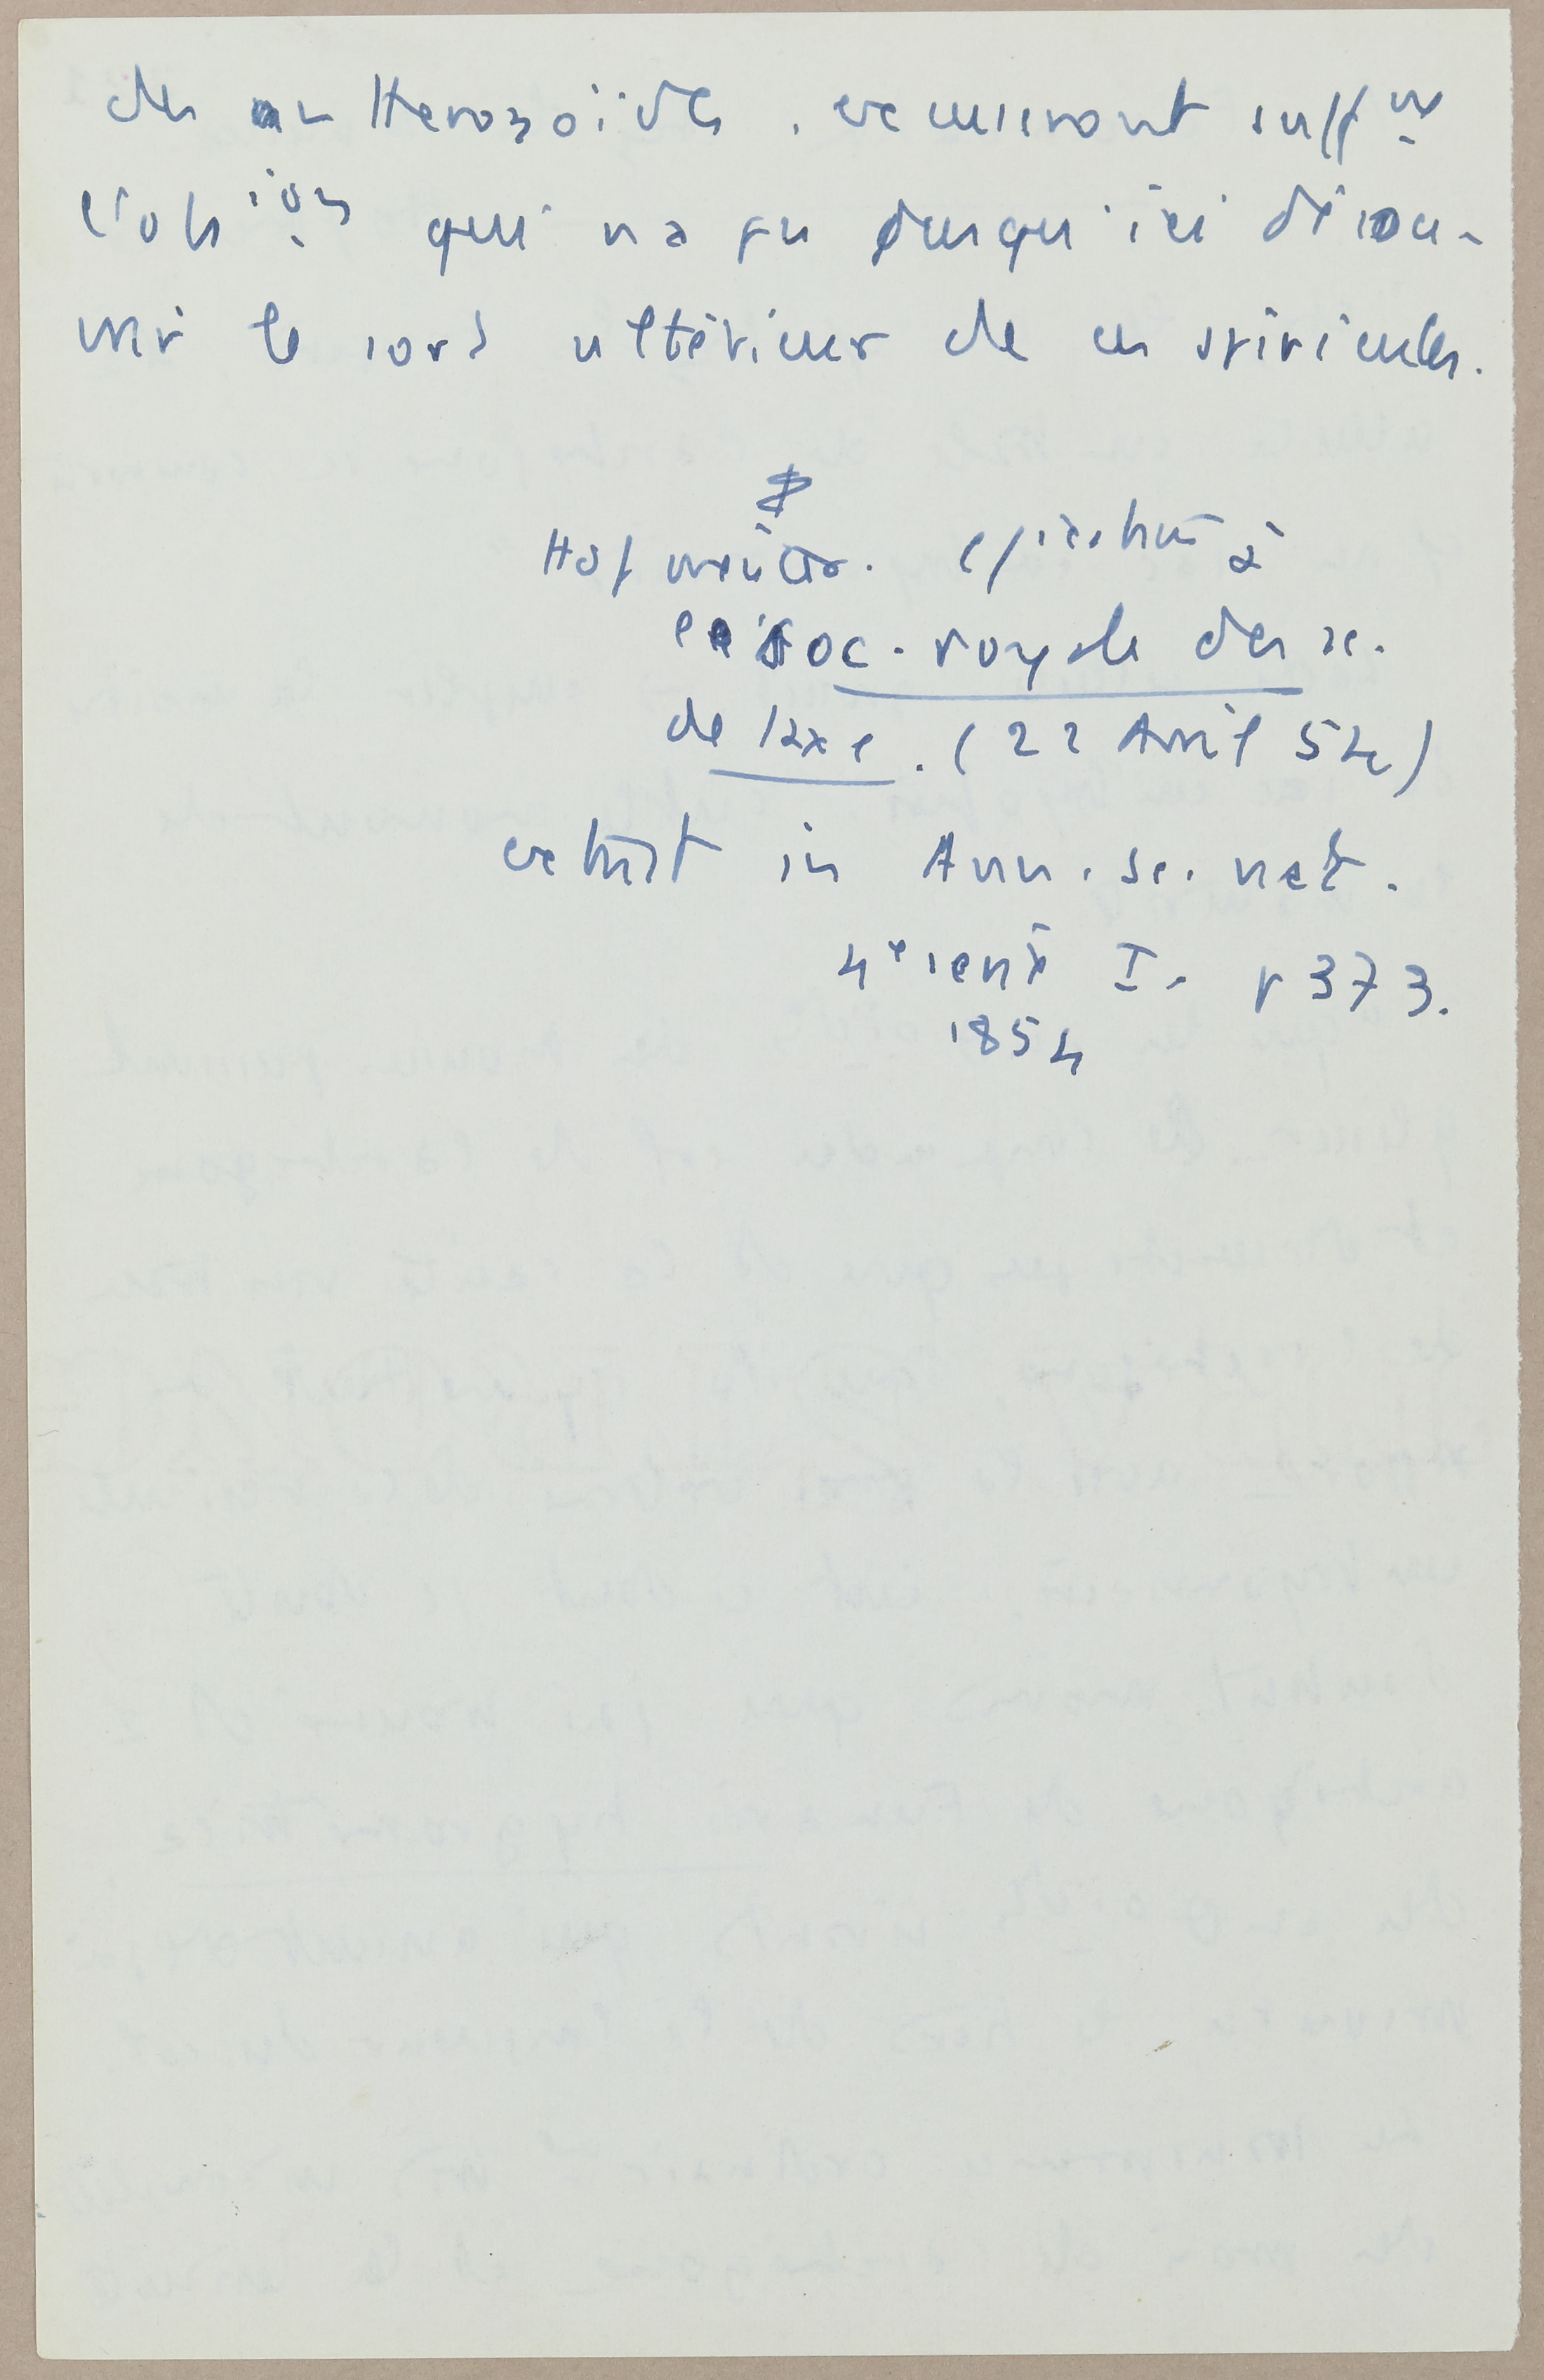 des anthérozoïdes, excuseront suff nt
l'obs ion qui n'a pu jusqu'ici décou-
vrir le sort ultérieur de ces spiricules.
Hofmeister. à
la soc. royale des sc.
de Saxe. (22 Avril 54)
extrait in Ann. sc. nat.
4e série I. p 373.
1854